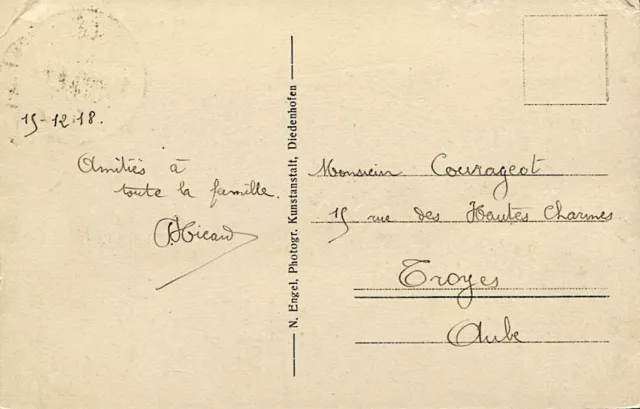 15-12-18.
Amitiés à
toute la famille.
N. Engel, Photogr. Kunstanstalt, Diedenhofen
Monsieur Courageot
15 rue des Hautes Charmes
Troyes
Aube